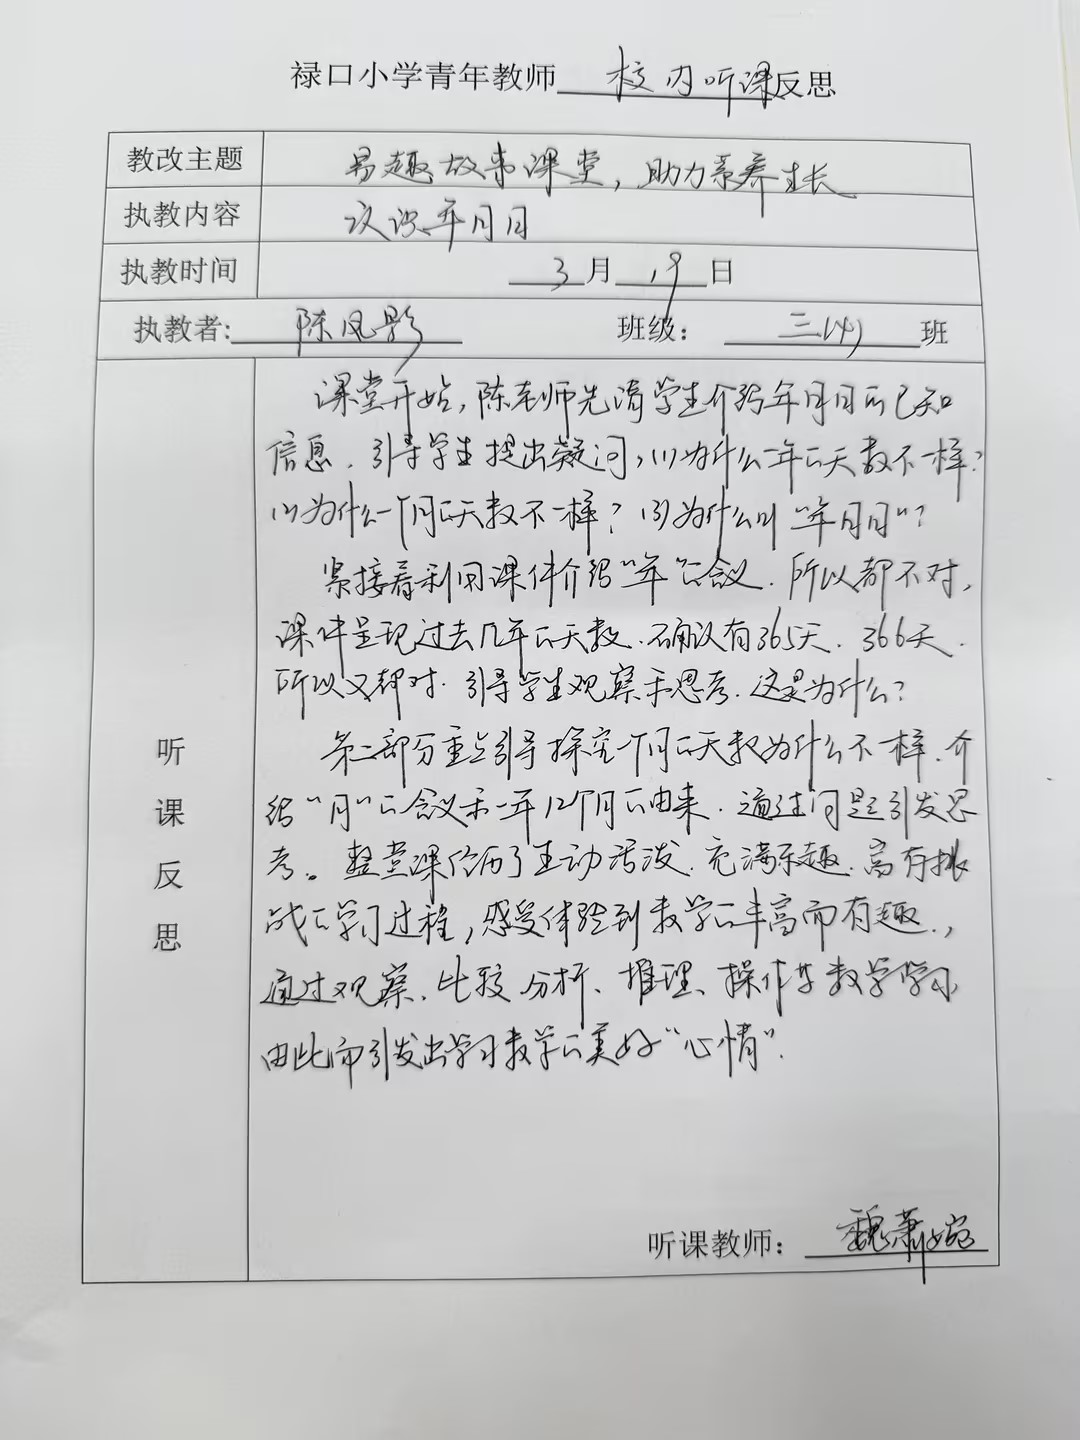 禄口小学青年教师校内听课反思
教改主题 易趣故事课堂，助力素养生长
执教内容 认识年月日
执教时间 3月19日
执教者：陈凤影 班级：三(4)班
听课反思
课堂开始，陈老师先请学生介绍年月日的已知
信息．引导学生提出疑问，(1)为什么一年的天数不一样？
(2)为什么一个月的天数不一样？(3)为什么叫“年月日”？
紧接着利用课件介绍“年”的含义．所以都不对，
课件呈现过去几年的天数．确认有365天．366天．
所以又都对．引导学生观察和思考．这是为什么？
第二部分重点引导探究一个月的天数为什么不一样．介
绍“月”的含义和一年12个月的由来．通过问题引发思
考。整堂课经历了生动活泼．充满乐趣．富有挑
战的学习过程，感受体验到数学的丰富而有趣．，
通过观察．比较．分析、推理、操作等数学学习
由此而引发出学习数学的美好“心情”．
听课教师：魏萧婉